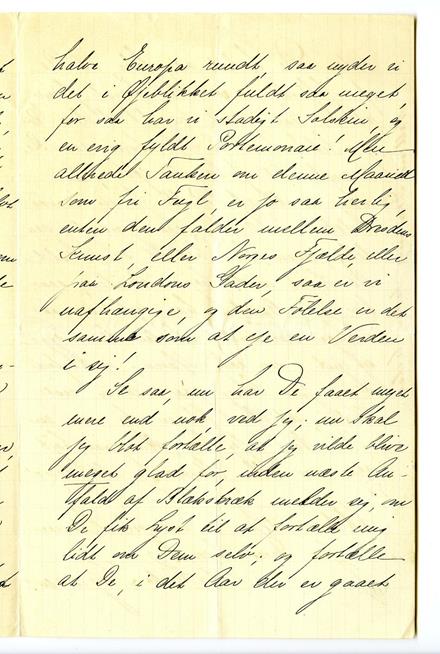 halve Europa rundt, saa nyder vi
det i Øjeblikket fuldt saa meget,
for saa har vi stadigt Solskin, og
en evig fyldt Portemonaie! Men
allerede Tanken om denne Maaned
som fri Fugl, er jo saa herlig,
enten den falder mellem Dresdens
Kunst, eller Norges Fjælde, eller
paa Londons Gader, saa er vi
uafhængige, og den Følelse er det
samme som at eje en Verden
i sig!
Se saa, nu har De faaet meget
mere end nok ved jeg; nu skal
jeg blot fortælle, at jeg vilde blive
meget glad for, inden næste An-
fald af Blækstræk melder sig, om
De fik Lyst til at fortælle mig
lidt om Dem selv; og fortælle
at De, i det Aar der er gaaet